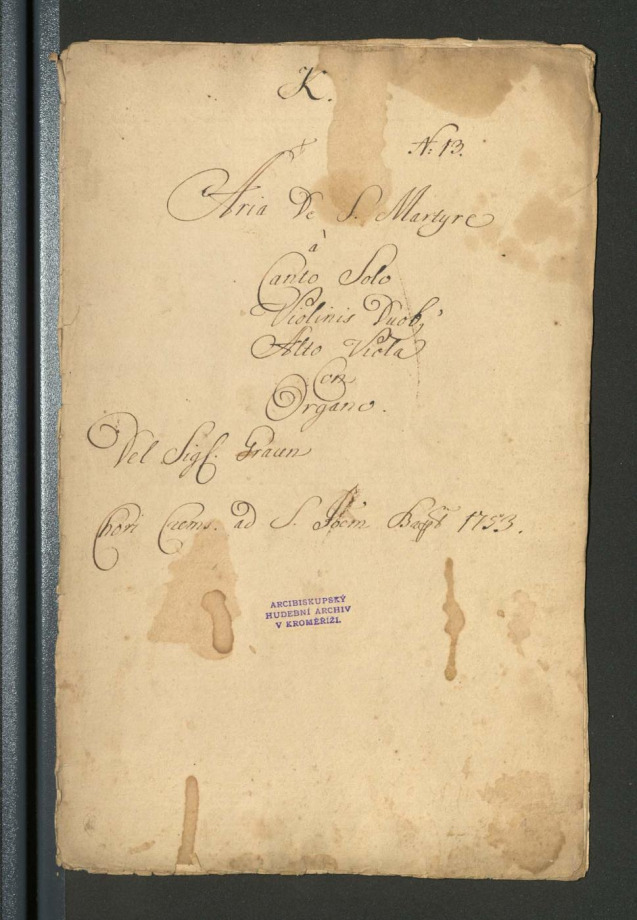 K.
N: 13.
Aria De S. Martyre
à
Canto Solo
Violinis Duob,
Alto Viola
Con
Organo.
Del Sig. Graun
Chori Crems. ad S. Joem Bapt 1753.
ARCIBISKUPSKÝ
HUDEBNÍ ARCHIV
V KROMĚŘÍŽI.